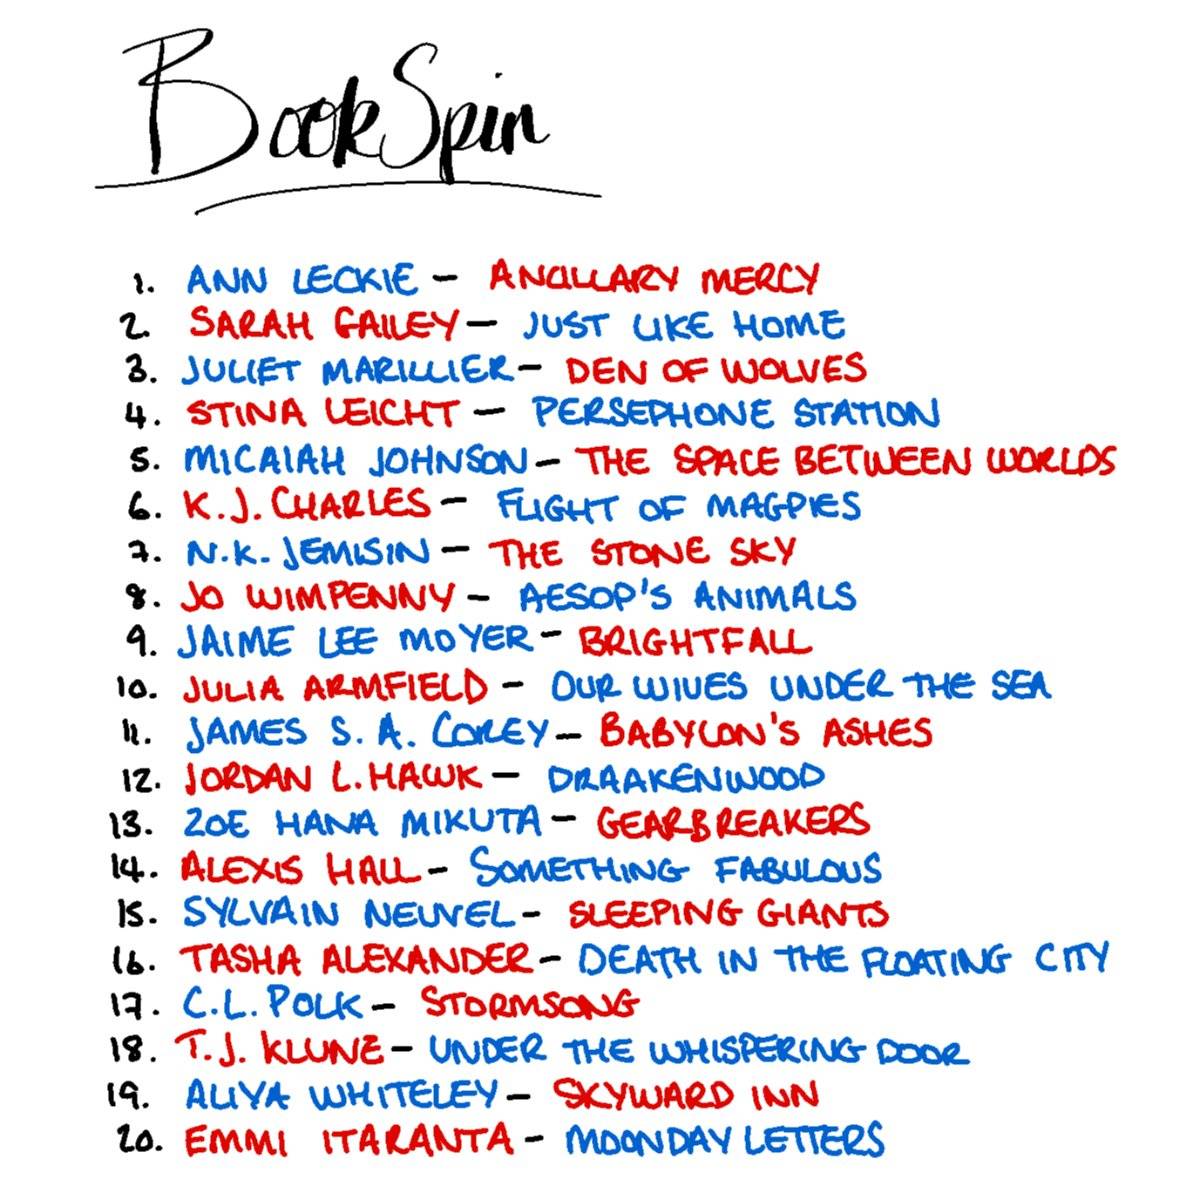 BookSpin
1. ANN LECKIE - ANCILLARY MERCY
2. SARAH GAILEY - JUST LIKE HOME
3. JULIET MARILLIER - DEN OF WOLVES
4. STINA LEICHT - PERSEPHONE STATION
5. MICAIAH JOHNSON - THE SPACE BETWEEN WORLDS
6. K.J. CHARLES - FLIGHT OF MAGPIES
7. N.K. JEMISIN - THE STONE SKY
8. JO WIMPENNY - AESOP'S ANIMALS
9. JAIME LEE MOYER - BRIGHTFALL
10. JULIA ARMFIELD - OUR WIVES UNDER THE SEA
11. JAMES S. A. COREY - BABYLON'S ASHES
12. JORDAN L. HAWK - DRAAKENWOOD
13. ZOE HANA MIKUTA - GEARBREAKERS
14. ALEXIS HALL - SOMETHING FABULOUS
15. SYLVAIN NEUVEL - SLEEPING GIANTS
16. TASHA ALEXANDER - DEATH IN THE FLOATING CITY
17. C.L. POLK - STORMSONG
18. T.J. KLUNE - UNDER THE WHISPERING DOOR
19. ALIYA WHITELEY - SKYWARD INN
20. EMMI ITARANTA - MOONDAY LETTERS